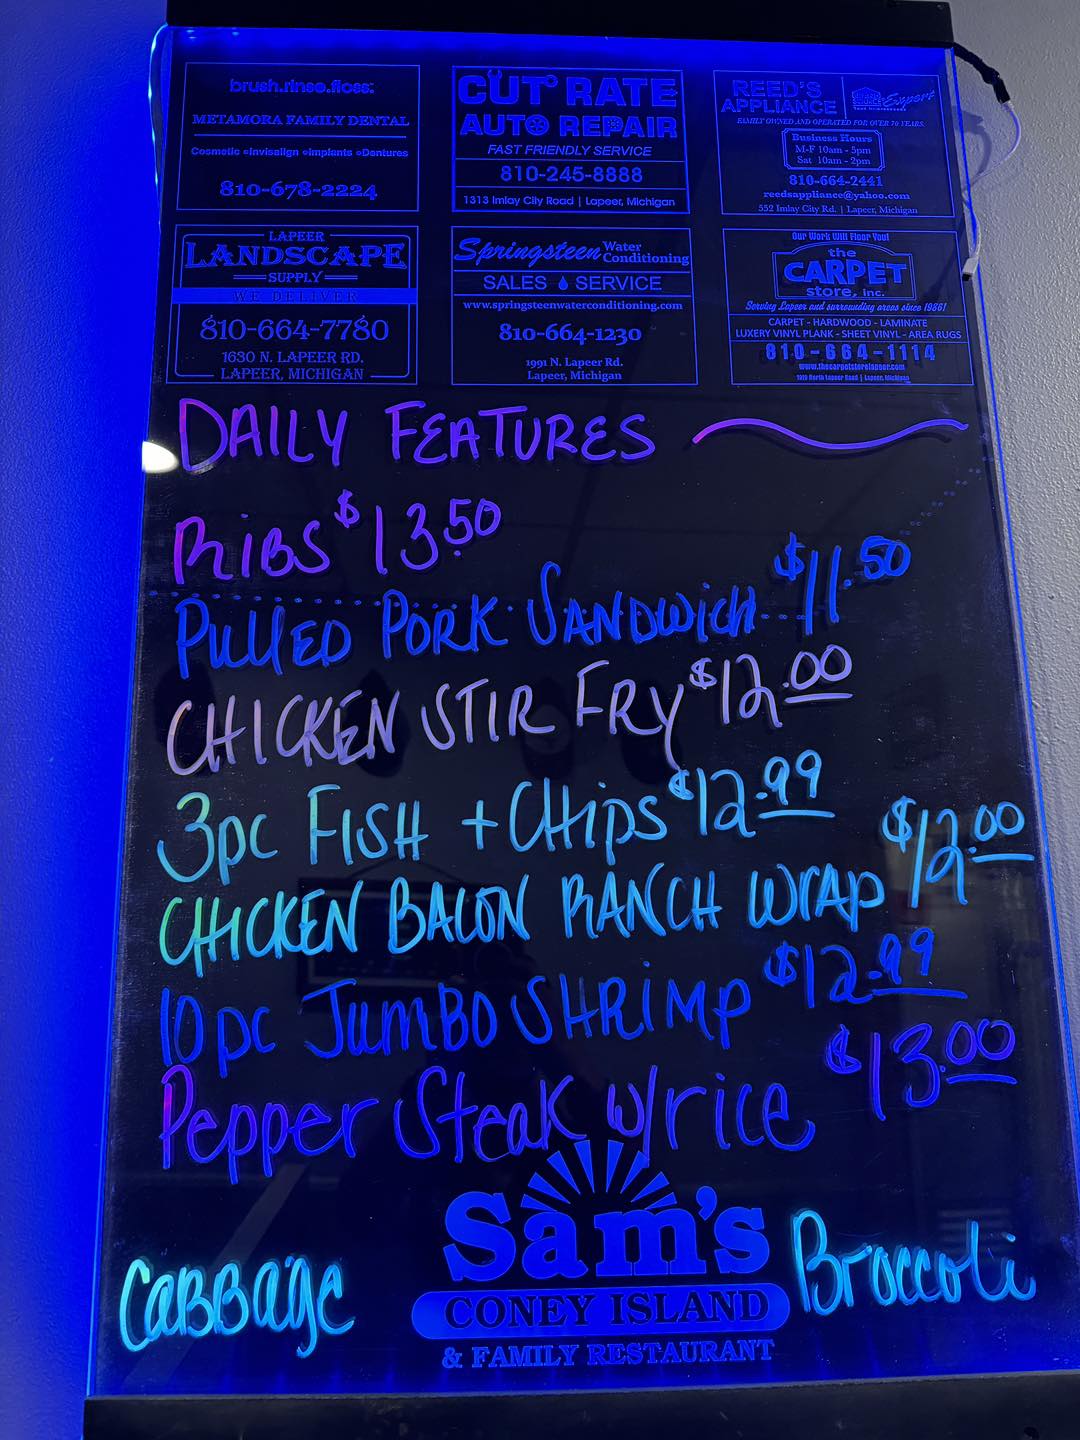 brush.rinse.floss:
METAMORA FAMILY DENTAL
Cosmetic •Invisalign •Implants •Dentures
810-678-2224
CUT RATE
AUTO REPAIR
FAST FRIENDLY SERVICE
810-245-8888
1313 Imlay City Road | Lapeer, Michigan
REED'S
APPLIANCE
Expert
FAMILY OWNED AND OPERATED FOR OVER 70 YEARS.
Business Hours
M-F 10am - 5pm
Sat 10am - 2pm
810-664-2441
reedsappliance@yahoo.com
552 Imlay City Rd. | Lapeer, Michigan
LAPEER
LANDSCAPE
SUPPLY
WE DELIVER
810-664-7780
1630 N. LAPEER RD.
LAPEER, MICHIGAN
Springsteen Water
Conditioning
SALES SERVICE
www.springsteenwaterconditioning.com
810-664-1230
1991 N. Lapeer Rd.
Lapeer, Michigan
Our Work Will Floor You!
the
CARPET
store, inc.
Serving Lapeer and surrounding areas since 1986!
CARPET - HARDWOOD - LAMINATE
LUXERY VINYL PLANK - SHEET VINYL - AREA RUGS
810-664-1114
www.thecarpetstorelapeer.com
1919 North Lapeer Road | Lapeer, Michigan
DAILY FEATURES
RIBS $13.50
PULLED PORK SANDWICH $11.50
CHICKEN STIR FRY $12.00
3pc FISH + CHIPS $12.99
CHICKEN BACON RANCH WRAP $12.00
10pc JUMBO SHRIMP $12.99
Pepper Steak w/rice $13.00
Sam's
CONEY ISLAND
& FAMILY RESTAURANT
CABBAGE
Broccoli